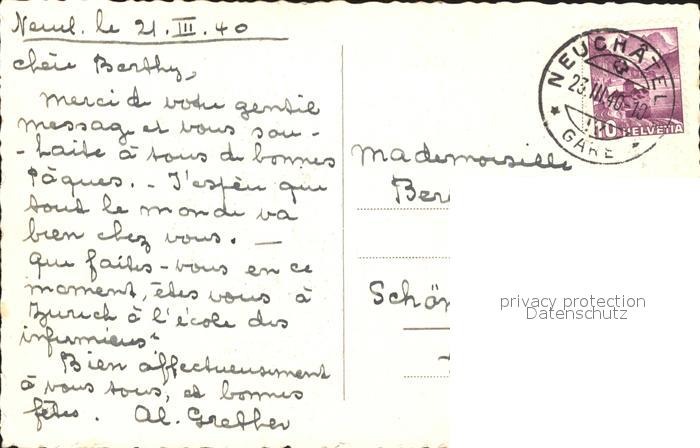 Neuch. le 21. III. 40
chère Berthy,
Merci de votre gentil
message et vous sou-
-haite à tous de bonnes
Pâques. - J'espère que
tout le monde va
bien chez vous. —
Que faites-vous en ce
moment, êtes vous à
Zurich à l'école des
infirmières
Bien affectueusement
à vous tous, et bonnes
fêtes. Al. Grether
NEUCHÂTEL
23.III.40-10
GARE
10 HELVETIA
Mademoiselle
Ber
Schön
privacy protection
Datenschutz